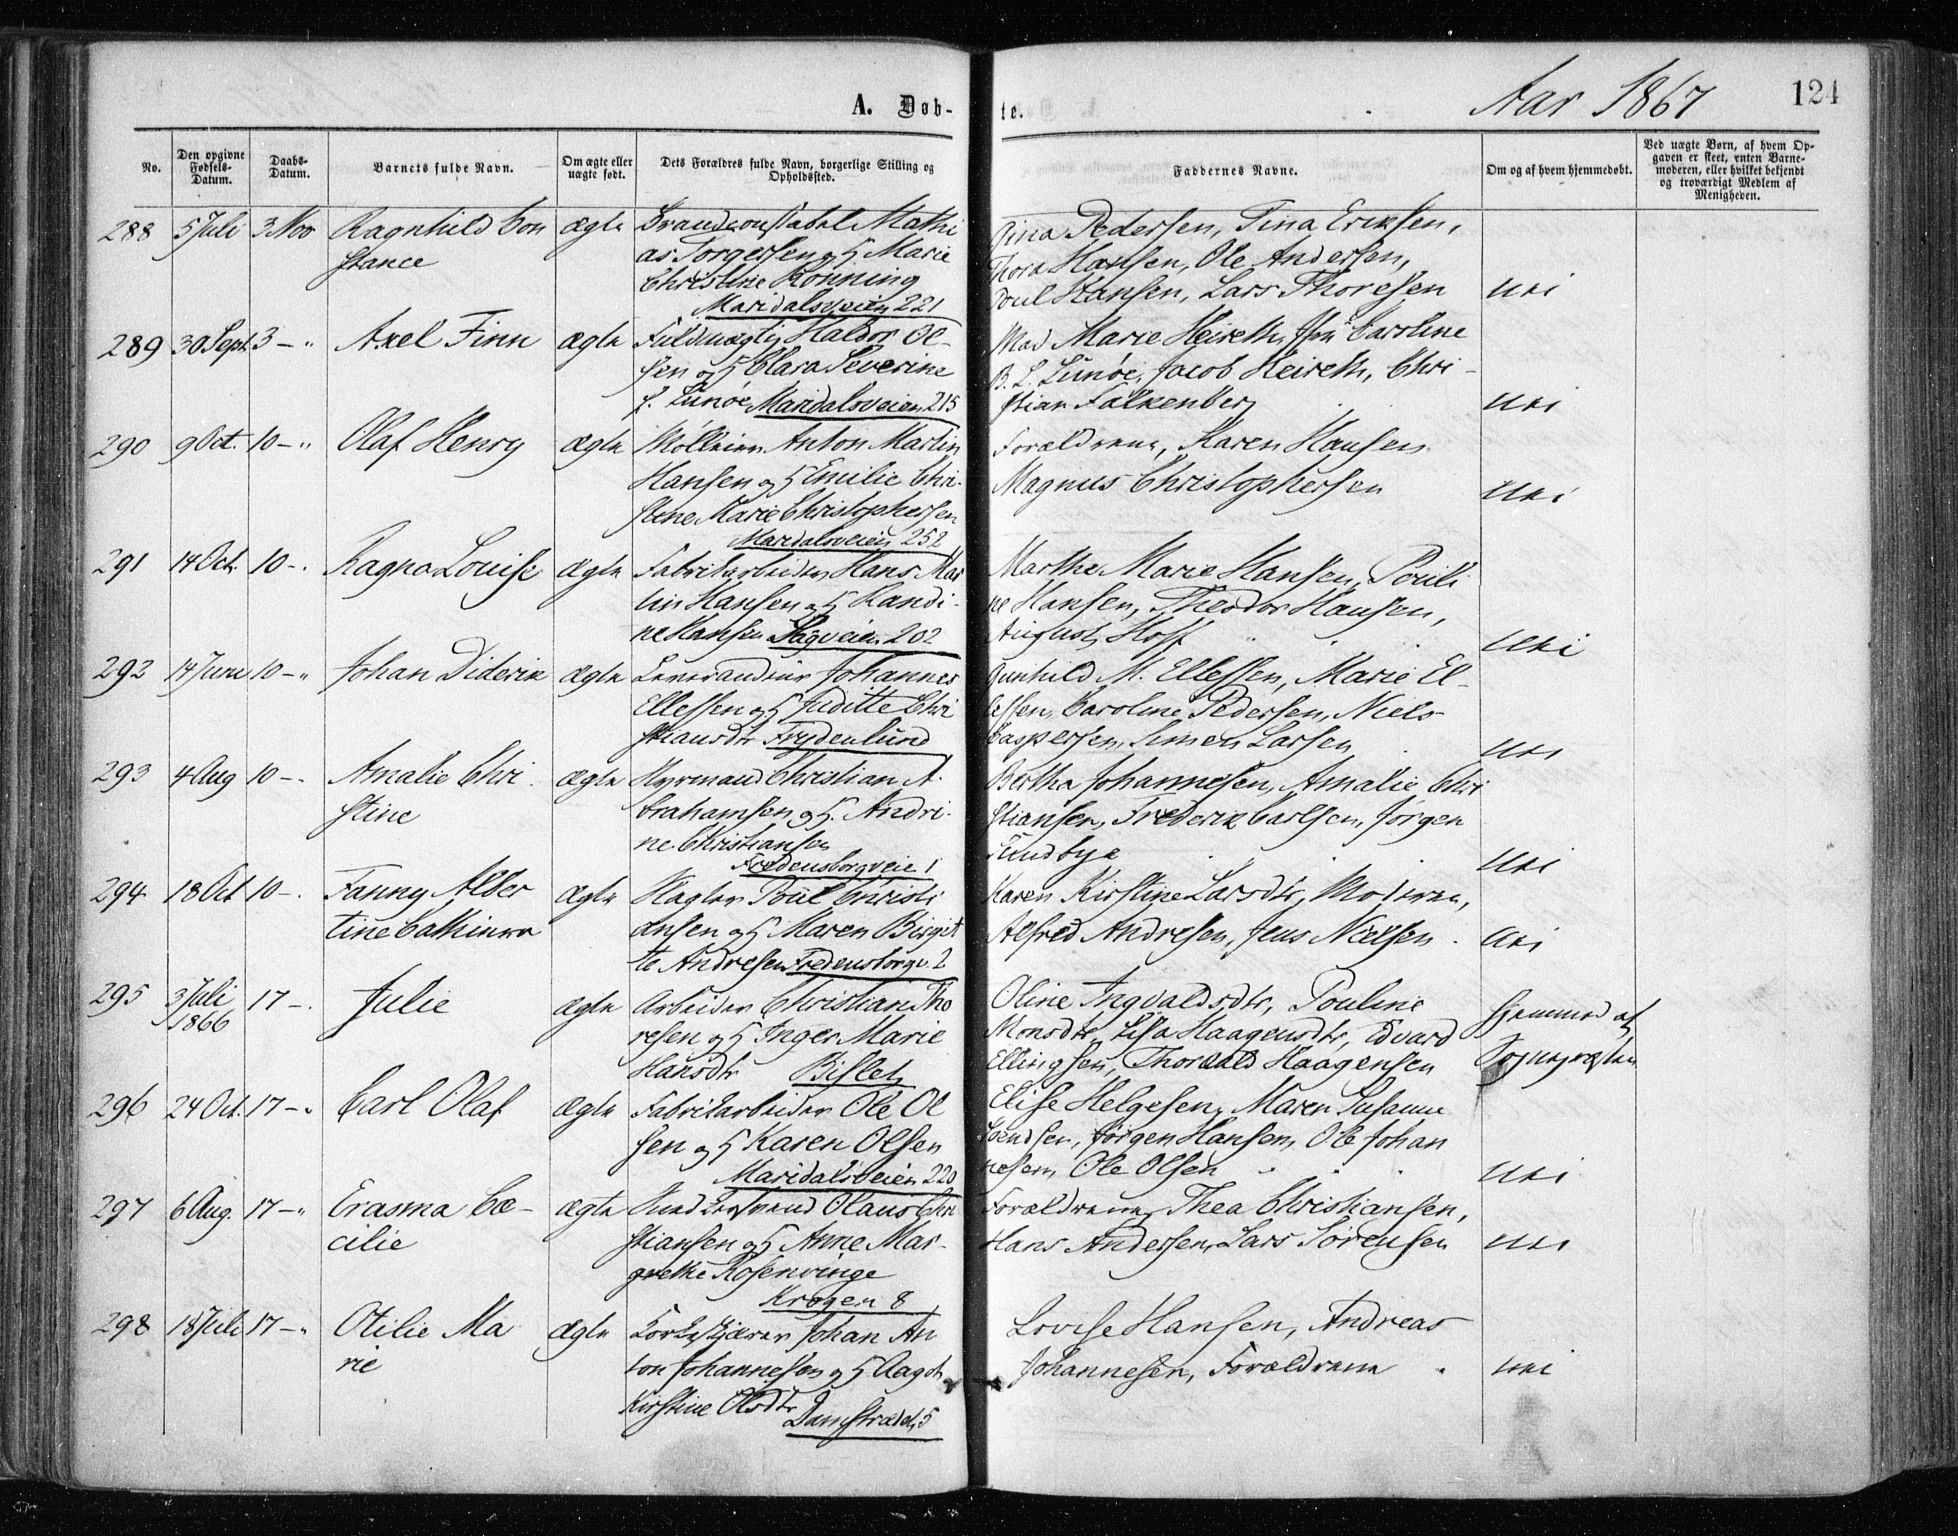 A. Døb-
te.
Aar 1867
124
No.
Den opgivne Fødsels-Datum.
Daabs-Datum.
Barnets fulde Navn.
Om ægte eller uægte født.
Dets Forældres fulde Navn, borgerlige Stilling og Opholdssted.
Faddernes Navne.
Om og af hvem hjemmedøbt.
Ved uægte Børn, af hvem Op-
gaven er skeet, enten Barne-
moderen, eller hvilket bekjendt
og troværdigt Medlem af
Menigheden.
288 5 Juli 3 Nov Ragnhild Con ægte Brandconstabel Mathi
stance as Torgersen og H Marie
Christine Rønning
Maridalsveien 221
Gina Pedersen, Tina Eriksen,
Thora Hansen, Ole Andersen,
Poul Hansen, Lars Thoresen
289 30 Sept. 3 - " Axel Finn ægte Fuldmægtig Haldor Ol-
sen og H Clara Severine
f. Lunøe Maridalsveien 215
Mad Marie Heireth, Caroline
B. L. Lunøe, Jacob Heireth, Chri-
stian Falkenberg
290 9 Oct. 10 - " Olaf Henry ægte Anton Martin
Hansen og H Emilie Chri-
stine Marie Christophersen
Maridalsveien 252
Forældrene, Karen Hansen
Magnus Christophersen
291 14 Oct. 10 - . Ragna Louise ægte Fabrikarbeider Hans Mar
tin Hansen og H Randi-
ne Hansen Sagveien 202
Marthe Marie Hansen, Pouli
ne Hansen, Theodor Hansen,
August Hoff
292 14 Juni 10 - " Johan Diderik ægte Leverandeur Johannes
Ellefsen og H Juditte Chri
stiansdtr Frydenlund
Gunhild M. Ellefsen, Marie El-
lefsen, Caroline Pedersen, Niels
Caspersen, Simen Larsen
293 4 Aug 10 - . Amalie Chri ægte Hyrmand Christian A-
stine brahamsen og H. Andri-
ne Christiansen
Fredensborgveie 1
Bertha Johannesen, Amalie Chri
stiansen, Frederik Carlsen, Jørgen
Sundbye
294 18 Oct 10 - . Fanny Alber ægte Poul Christi
tine Cathinca ansen og H Maren Birgit
te Andresen Fredensborgv. 2
Karen Kirstine Larsdtr, Moderen,
Alfred Andresen, Jens Nielsen
295 3 Juli 1866 17 - . Julie ægte Arbeider Christian Tho
resen og H Inger Marie
Hansdtr Bislet
Oline Ingvaldsdtr, Pouline
Monsdtr, Lisa Haagensdtr, Edvard
Ellingsen, Thorvald Haagensen
Hjemmed af
Sognepresten
296 24 Oct. 17 - " Carl Olaf ægte Fabrikarbeider Ole Ol
sen og H Karen Olsen
Maridalsveien 220
Elise Helgesen, Maren Susanne
Svendsen, Jørgen Hansen, Ole Johan
nesen, Ole Olsen
297 6 Aug. 17 - " Erasma Ce- ægte Olaus Chri
cilie stiansen og H Anne Mar-
grethe Rosenvinge
Krogen 8
Forældrene, Thea Christiansen,
Hans Andersen, Lars Sørensen
298 18 Juli 17 - " Otilie Ma ægte Korkeskjærer Johan An
rie ton Johannesen og H Aagot
Kirstine Olsdtr
Damstrædet 5
Lovise Hansen, Andreas
Johannesen, Forældrene